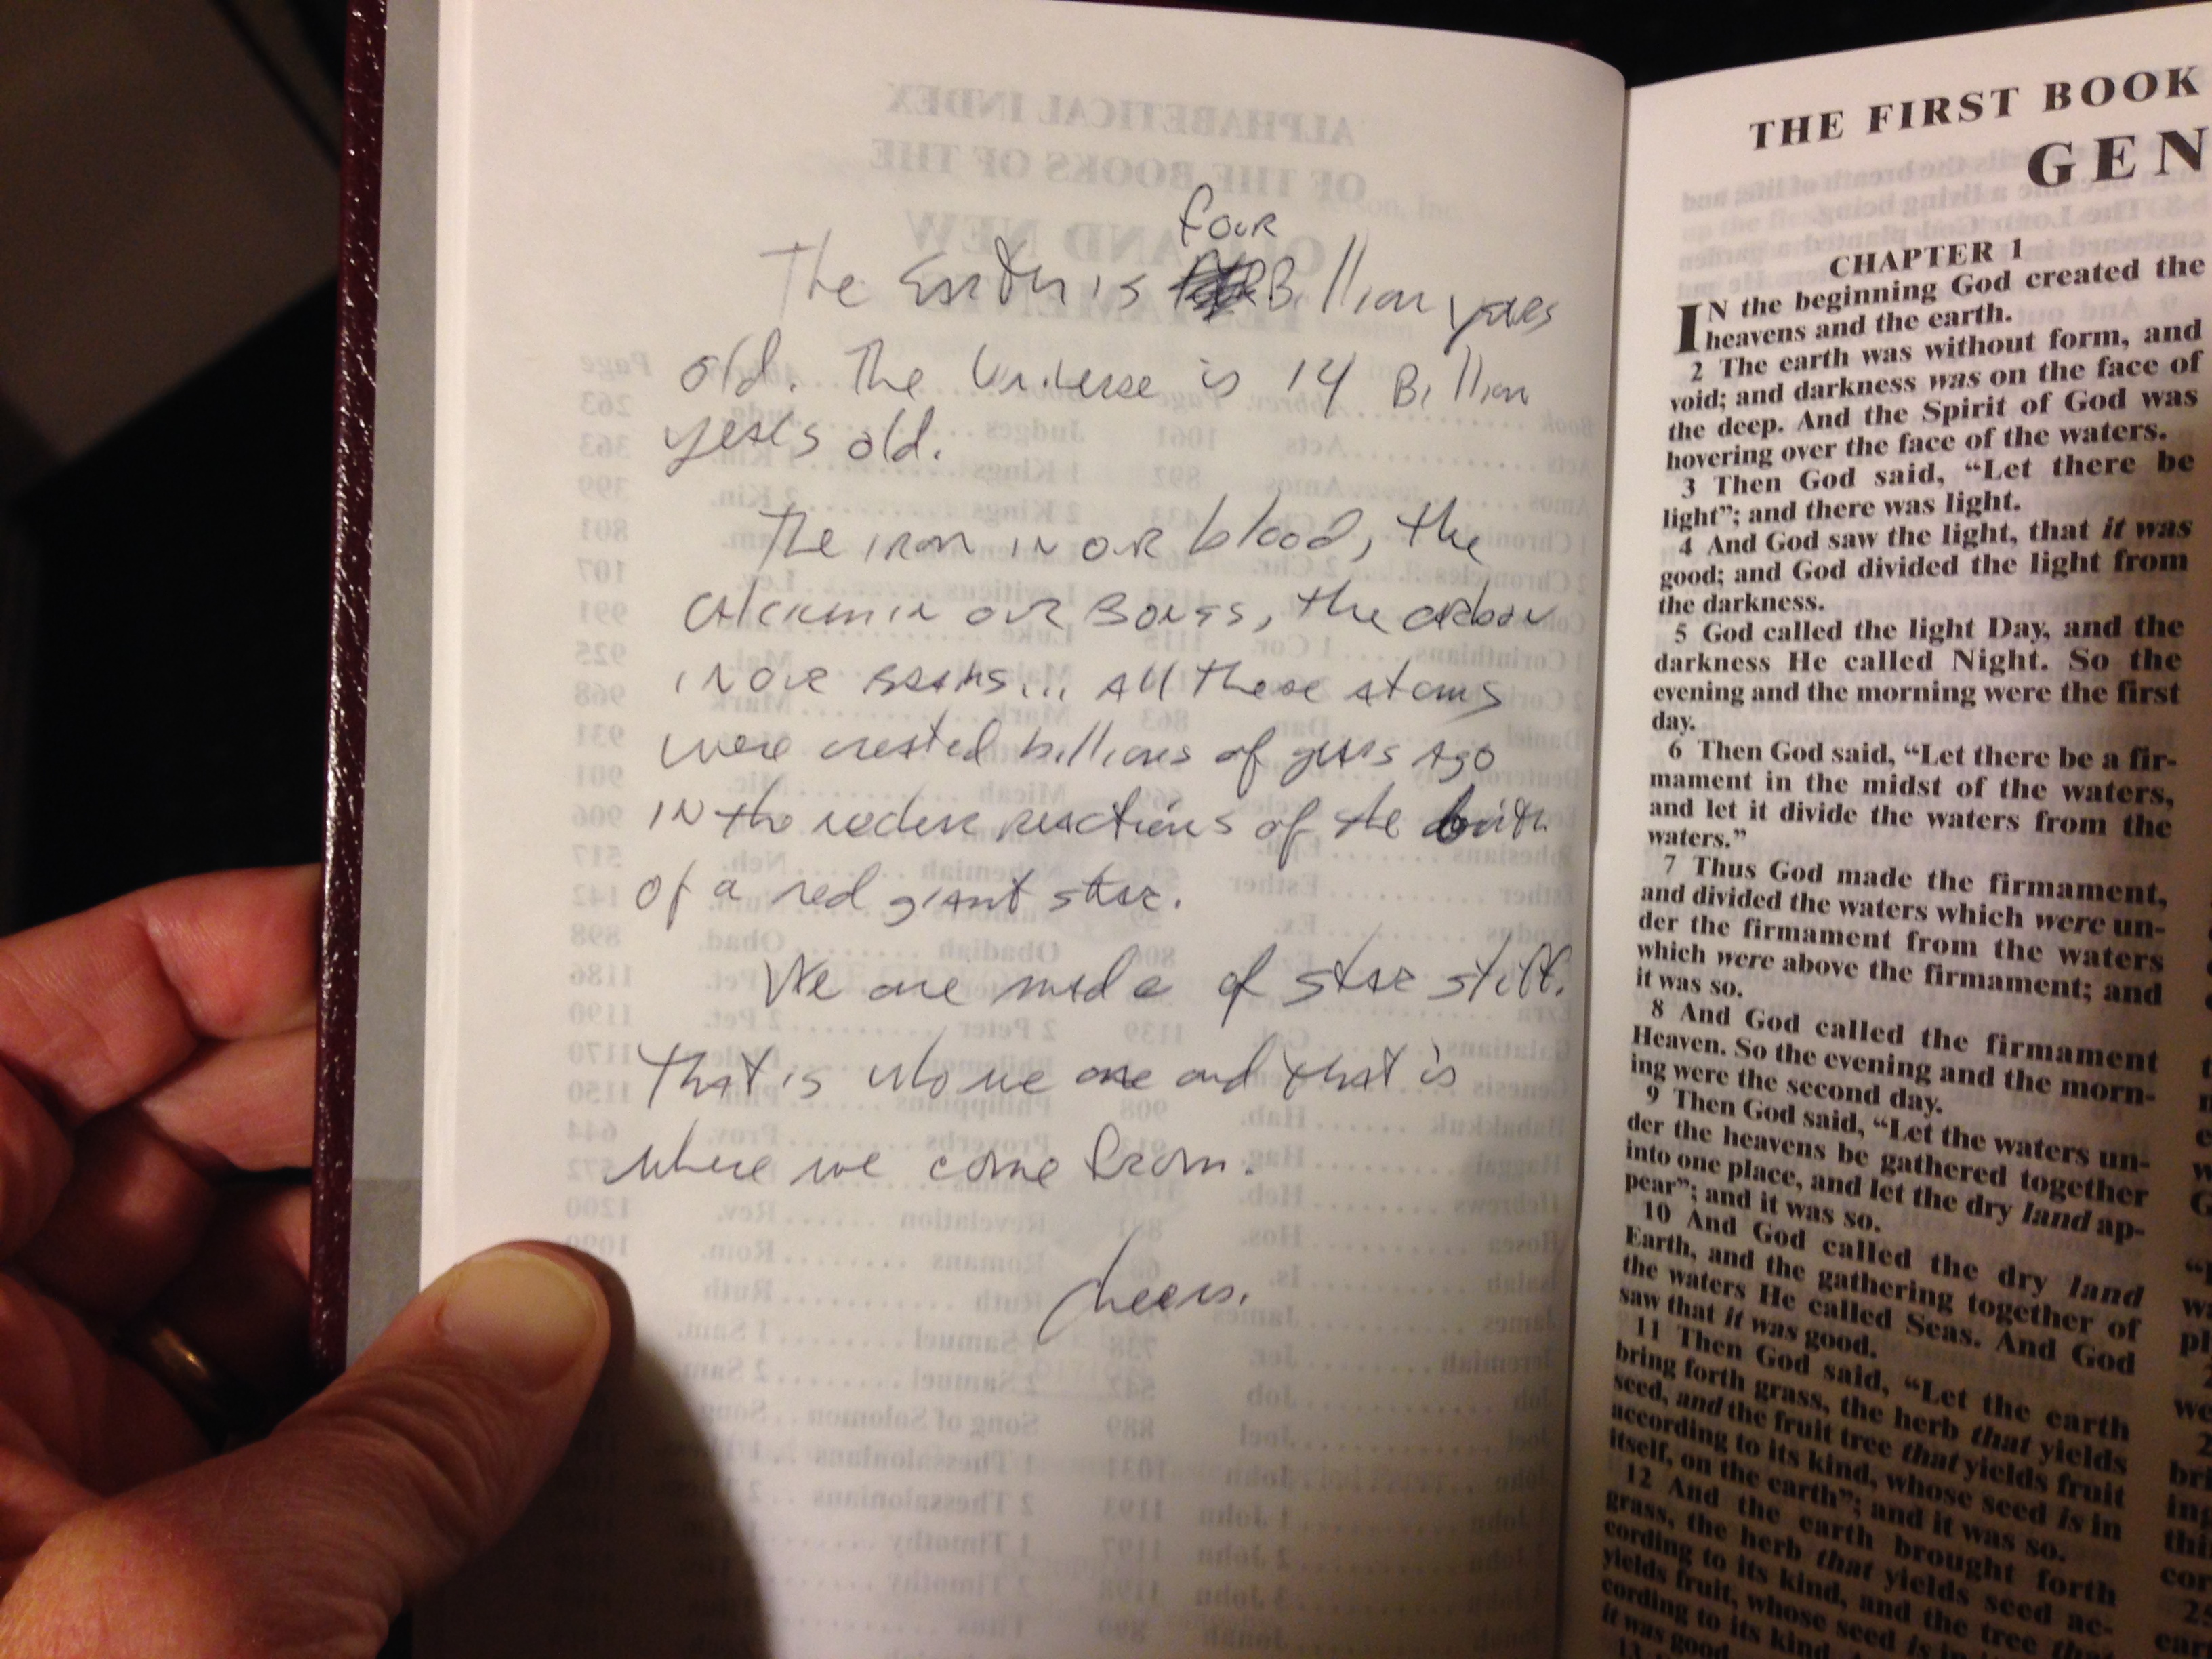 four
The Earth is Billion years
old. The Universe is 14 Billion
years old.
The iron in our blood, the
calcium in our Bones, the carbon
in our brains... All these atoms
were created billions of years ago
in the nuclear reactions of the birth
of a red giant star.
We are made of star stuff.
That is who we are and that is
where we come from.
Cheers.
THE FIRST BOOK
GEN
CHAPTER 1
IN the beginning God created the
heavens and the earth.
2 The earth was without form, and
void; and darkness was on the face of
the deep. And the Spirit of God was
hovering over the face of the waters.
3 Then God said, “Let there be
light”; and there was light.
4 And God saw the light, that it was
good; and God divided the light from
the darkness.
5 God called the light Day, and the
darkness He called Night. So the
evening and the morning were the first
day.
6 Then God said, “Let there be a fir-
mament in the midst of the waters,
and let it divide the waters from the
waters.”
7 Thus God made the firmament,
and divided the waters which were un-
der the firmament from the waters
which were above the firmament; and
it was so.
8 And God called the firmament
Heaven. So the evening and the morn-
ing were the second day.
9 Then God said, “Let the waters un-
der the heavens be gathered together
into one place, and let the dry land ap-
pear”; and it was so.
10 And God called the dry land
Earth, and the gathering together of
the waters He called Seas. And God
saw that it was good.
11 Then God said, “Let the earth
bring forth grass, the herb that yields
seed, and the fruit tree that yields fruit
according to its kind, whose seed is in
itself, on the earth”; and it was so.
12 And the earth brought forth
grass, the herb that yields seed ac-
cording to its kind, and the tree that
yields fruit, whose seed is in
cording to its kind.
it was good.
13